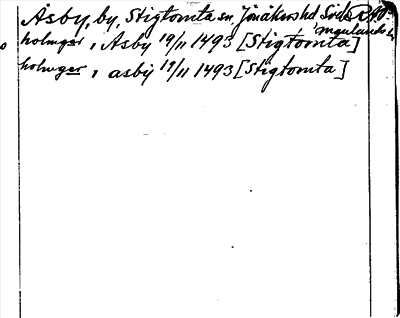 Åsby, by, Stigtomta sn, Jönåkers hd Söd
holmger i Åsby 19/11 1493 [Stigtomta]
holmger i asby 19/11 1493 [Stigtomta]